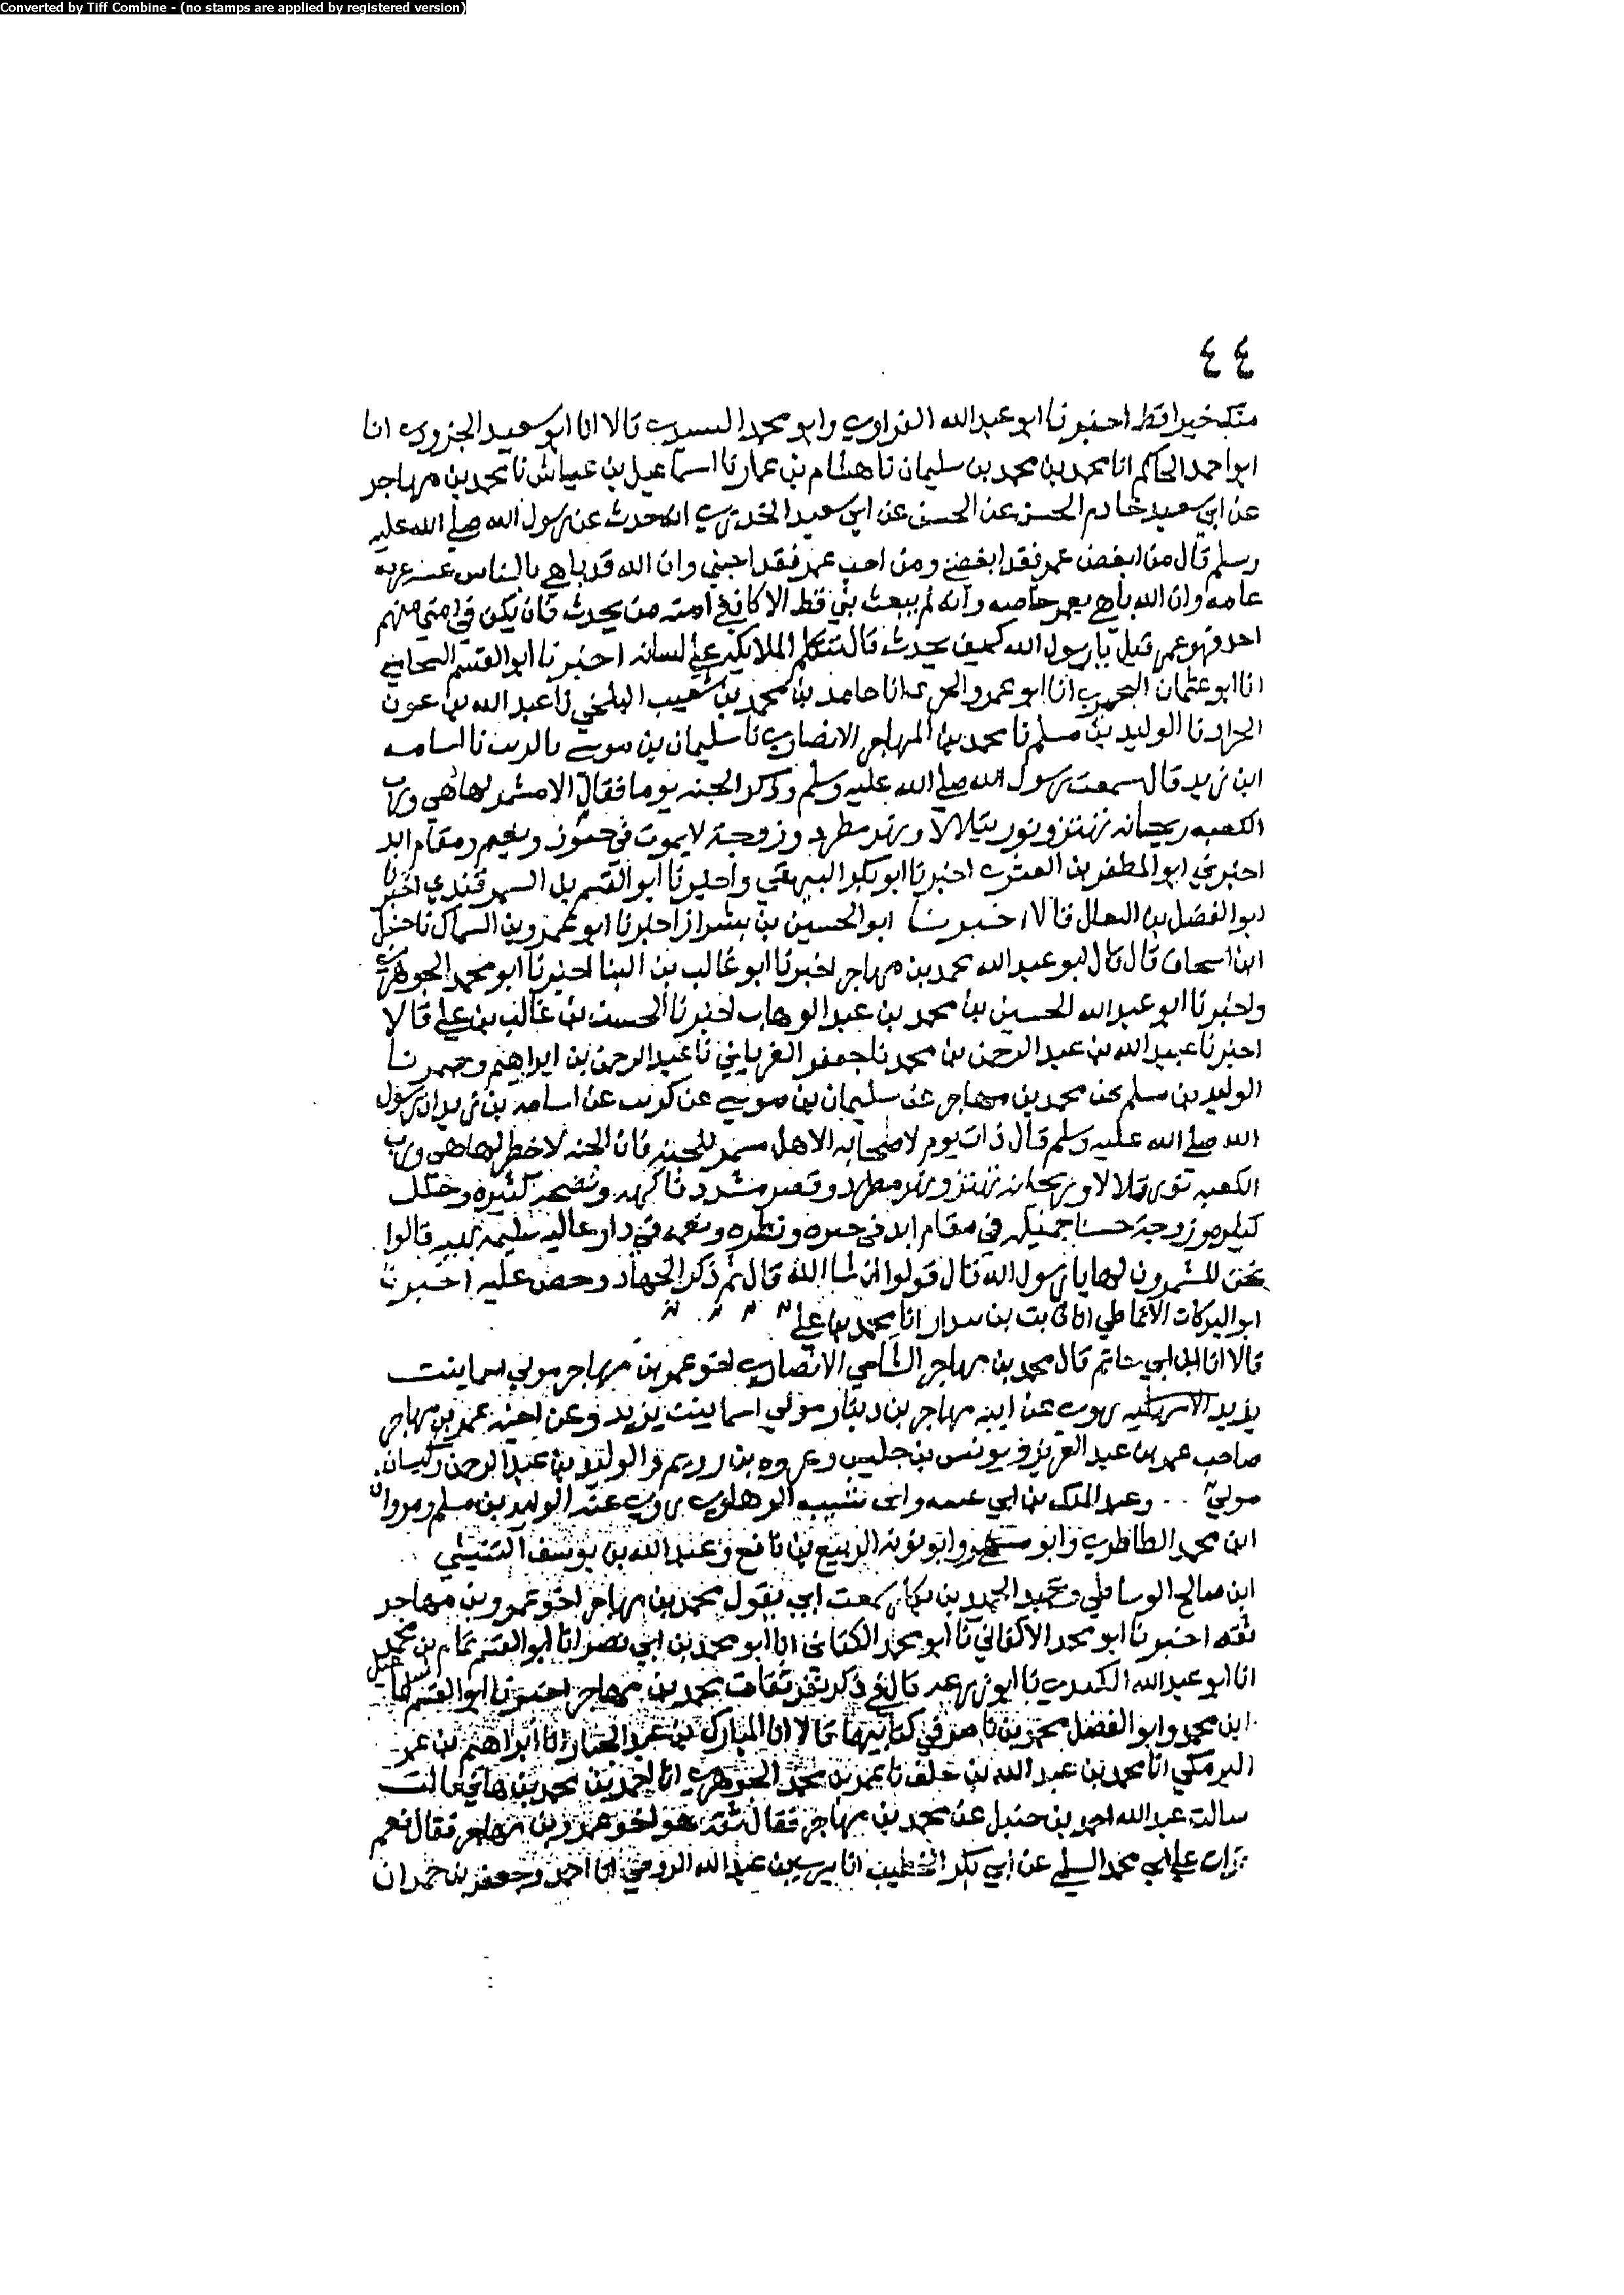 Converted by Tiff Combine - (no stamps are applied by registered version)
٤٤
منك خيرا قط اخبرنا ابو عبد الله الفراوي وابو محمد السيدي قالا انا ابو سعيد الجنزرودي انا
ابو احمد الحاكم انا محمد بن محمد بن سليمان نا هشام بن عمار نا اسماعيل بن عياش نا محمد بن مهاجر
عن ابي سعيد خادم الحسن عن الحسن عن ابي سعيد الخدري انه حدث عن رسول الله صلى الله عليه
وسلم قال من ابغض عمر فقد ابغضني ومن احب عمر فقد احبني وان الله قد باهى بالناس عشية عرفة
عامه وان الله باهى بعمر خاصه وانه لم يبعث نبي قط الا كان في امته من يحدث فان يكن في امتي منهم
احد فهو عمر قيل يا رسول الله كيف يحدث قال تتكلم الملايكة على لسانه اخبرنا ابو القسم الشحامي
انا ابو عثمان البحيري انا ابو عمرو الحيري انا حامد بن محمد بن شعيب البلخي نا عبد الله بن عون
الخراز نا الوليد بن مسلم نا محمد بن المهاجر الانصاري نا سليمان بن موسى نا كريب نا اسامه
ابن زيد قال سمعت رسول الله صلى الله عليه وسلم وذكر الجنه يوما فقال الا مشمر لها هي ورب
الكعبه ريحانه تهتز ونور يتلالا ونهر مطرد وزوجة لا تموت في حبور ونعيم ومقام ابد
اخبرني ابو المظفر بن القشيري اخبرنا ابو بكر البيهقي واخبرنا ابو القسم بن السمرقندي اخبرنا
ابو الفضل بن البقال قالا اخبرنا ابو الحسين بن بشران اخبرنا ابو عمرو بن السماك نا حنبل
ابن اسحاق قال قال ابو عبد الله محمد بن مهاجر اخبرنا ابو غالب بن البنا اخبرنا ابو محمد الجوهري
واخبرنا ابو عبد الله الحسين بن محمد بن عبد الوهاب اخبرنا الحسن بن غالب بن علي قالا
اخبرنا عبيد الله بن عبد الرحمن بن محمد نا جعفر الفريابي نا عبد الرحمن بن ابراهيم دحيم نا
الوليد بن مسلم عن محمد بن مهاجر عن سليمان بن موسى عن كريب عن اسامه بن زيد ان رسول
الله صلى الله عليه وسلم قال ذات يوم لاصحابه الا هل مشمر للجنه فان الجنه لا خطر لها هي ورب
الكعبه نور يتلالا وريحانه تهتز ونهر مطرد وقصر مشيد فاكهه ونضجه كثيره وحلل
كثيره وزوجة حسنا جميله في مقام ابد في حبره ونظره ونعمه في دار عاليه سليمه بهيه قالوا
نحن المشمرون لها يا رسول الله قال قولوا ان شا الله قال ثم ذكر الجهاد وحض عليه اخبرنا
ابو البركات الانماطي انا ثابت بن بندار انا محمد بن علي
قالا انا ابن ابي حاتم قال محمد بن مهاجر الشامي الانصاري اخو عمرو بن مهاجر مولى اسما بنت
يزيد الاشهليه روى عن ابيه مهاجر بن دينار مولى اسما بنت يزيد وعن اخيه عمرو بن مهاجر
صاحب عمر بن عبد العزيز ويونس بن حلبس وعروه بن رويم والوليد بن عبد الرحمن وكيسان
مولى .. وعبد الملك بن ابي وابي شيبه روى عنه الوليد بن مسلم ومروان
ابن محمد الطاطري وابو مسهر وابو توبه الربيع بن نافع وعبد الله بن يوسف التنيسي
ابن صالح الوساطي وعبد الحميد بن بكار سمعت ابي يقول محمد بن مهاجر اخو عمرو بن مهاجر
ثقه اخبرنا ابو محمد الاكفاني نا ابو محمد الكتاني انا ابو محمد بن ابي نصر انا ابو القسم تمام بن محمد
انا ابو عبد الله الكندي نا ابو زرعه قال في ذكر نفر ثقات محمد بن مهاجر اخبرنا ابو القسم اسماعيل
ابن محمد وابو الفضل محمد بن ناصر في كتابيهما قالا انا المبارك بن عبد الجبار انا ابراهيم بن عمر
البرمكي انا محمد بن عبد الله بن خلف نا عمر بن محمد الجوهري انا احمد بن محمد بن هاني قالت
سالت عبد الله احمد بن حنبل عن محمد بن مهاجر فقال ثقه هو اخو عمرو بن مهاجر فقال نعم
قرات على ابي محمد السلمي عن ابي بكر الخطيب انا بن عبد الله الرومي انا احمد وجعفر بن حمدان